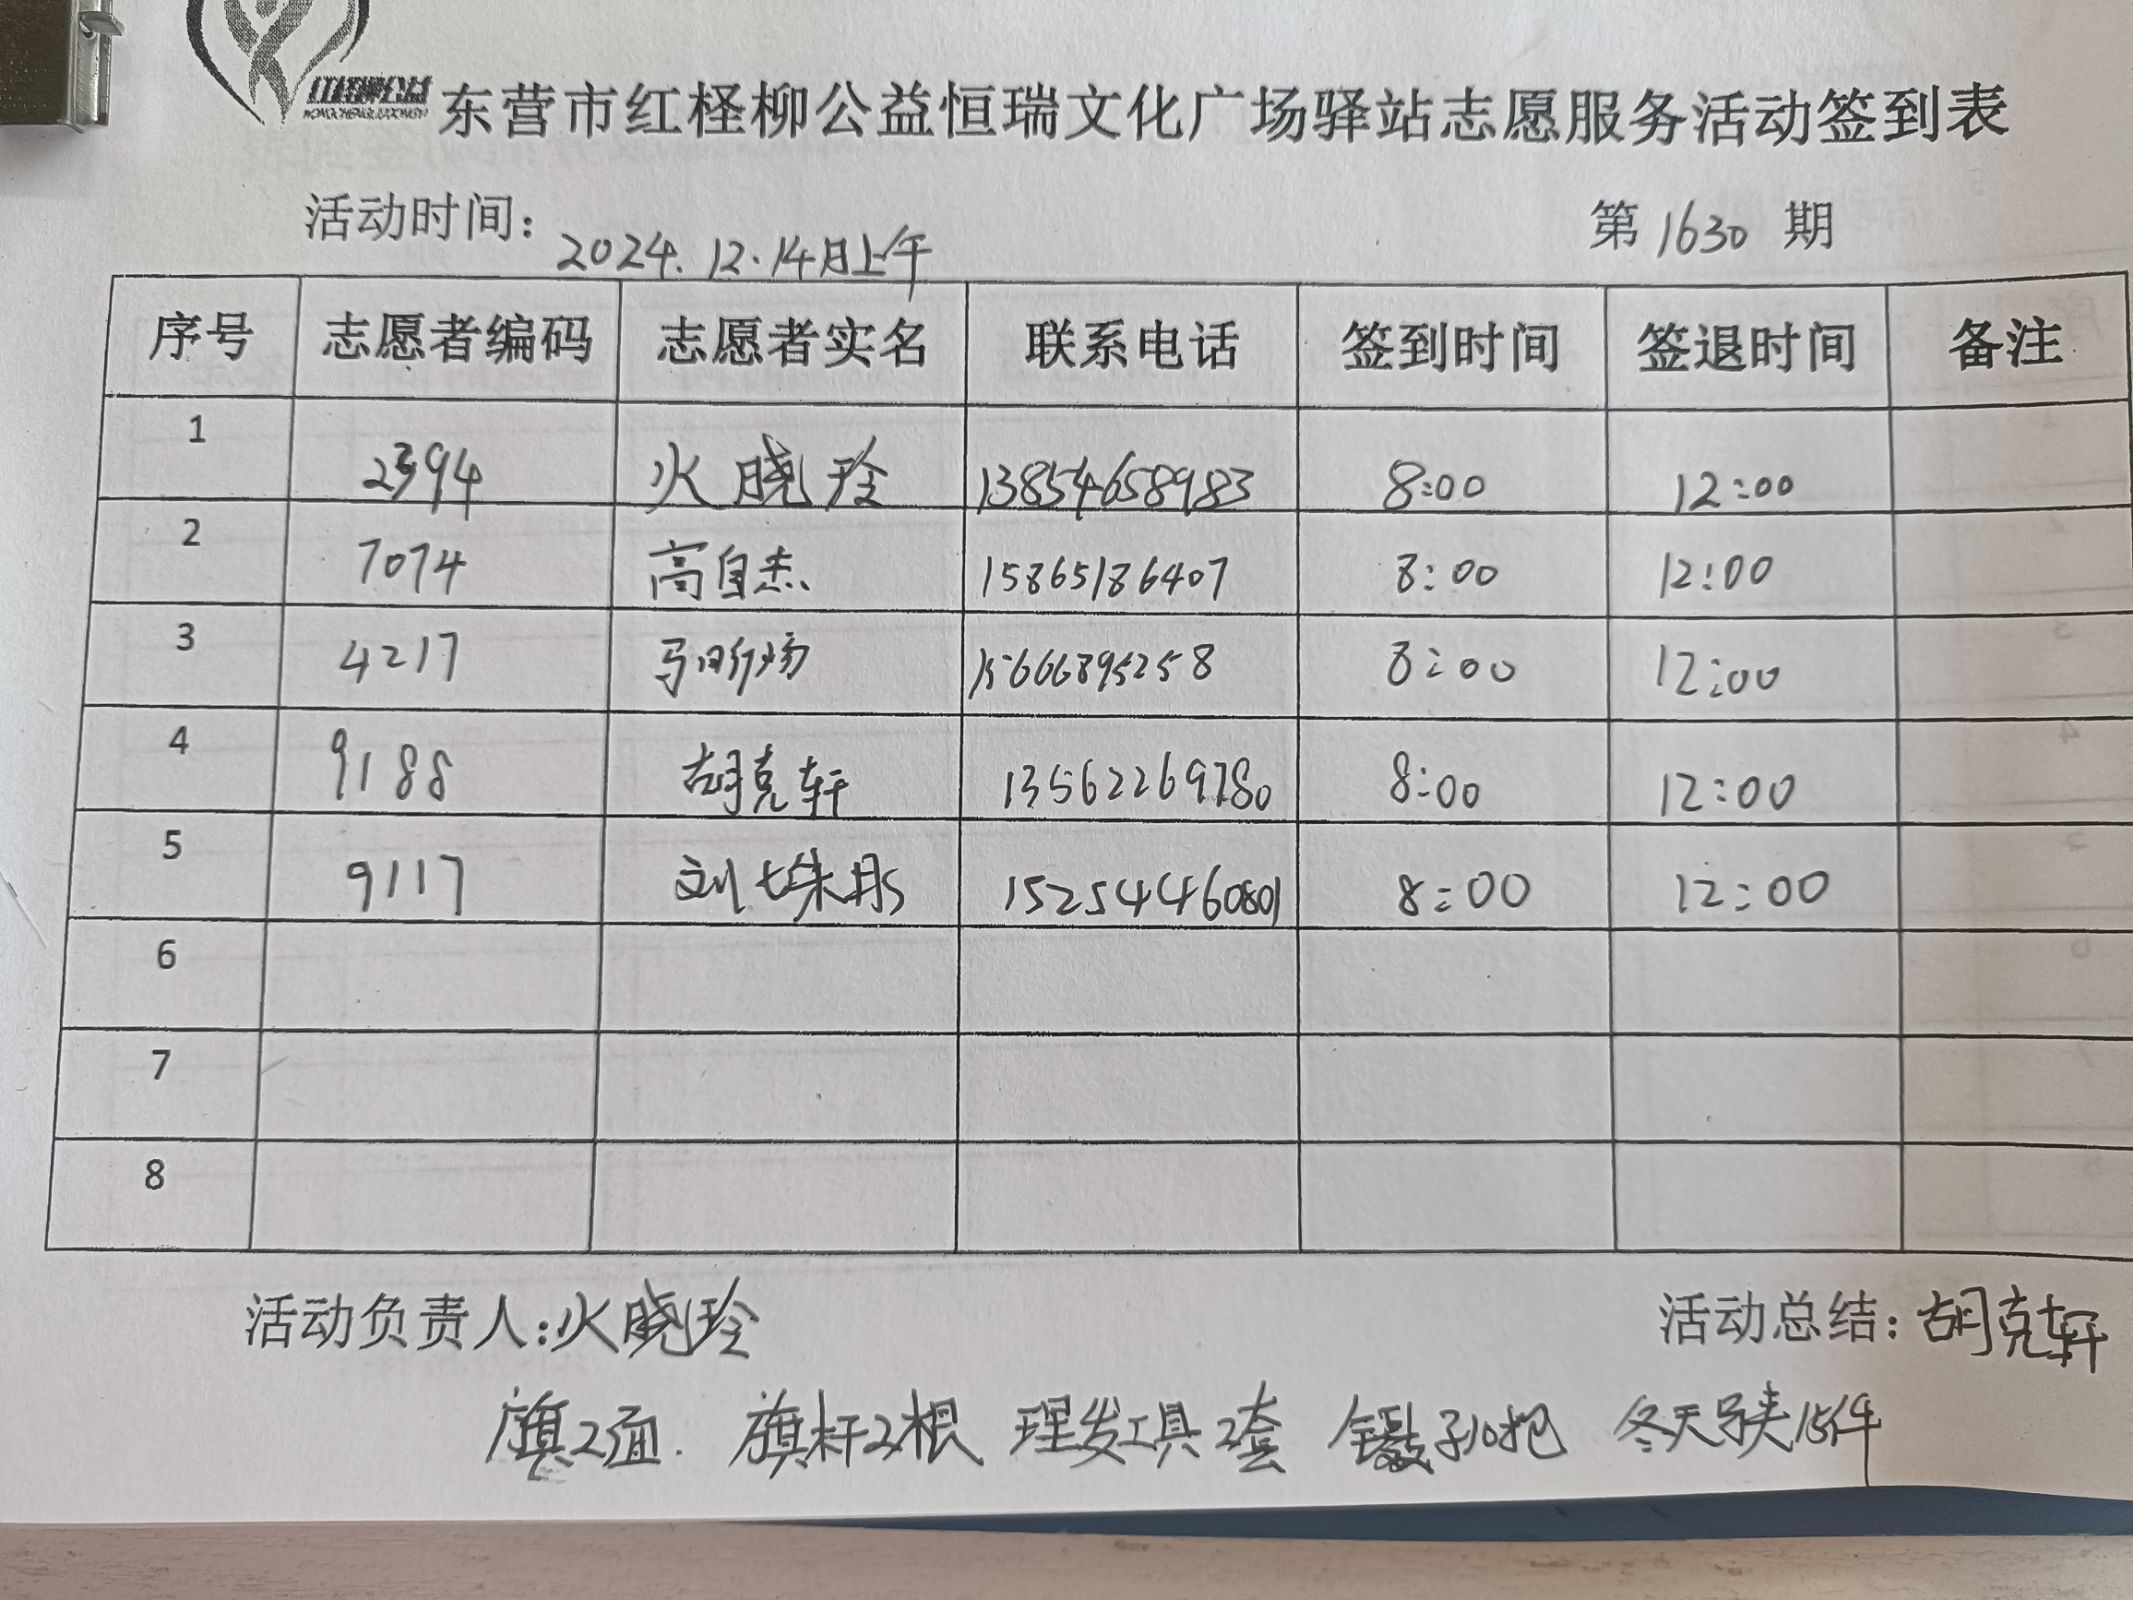 红柽柳公益
东营市红柽柳公益恒瑞文化广场驿站志愿服务活动签到表
活动时间: 2024.12.14日上午 第1630期
序号 志愿者编码 志愿者实名 联系电话 签到时间 签退时间 备注
1 2394 火晓玲 13854658983 8:00 12:00
2 7074 高自杰 15865186407 8:00 12:00
3 4217 15666895258 8:00 12:00
4 9188 胡克轩 13562269780 8:00 12:00
5 9117 刘姝彤 15254460801 8:00 12:00
6
7
8
活动负责人:火晓玲 活动总结:胡克轩
旗2面. 旗杆2根 理发工具2套 镊子10把 冬天马夹15件